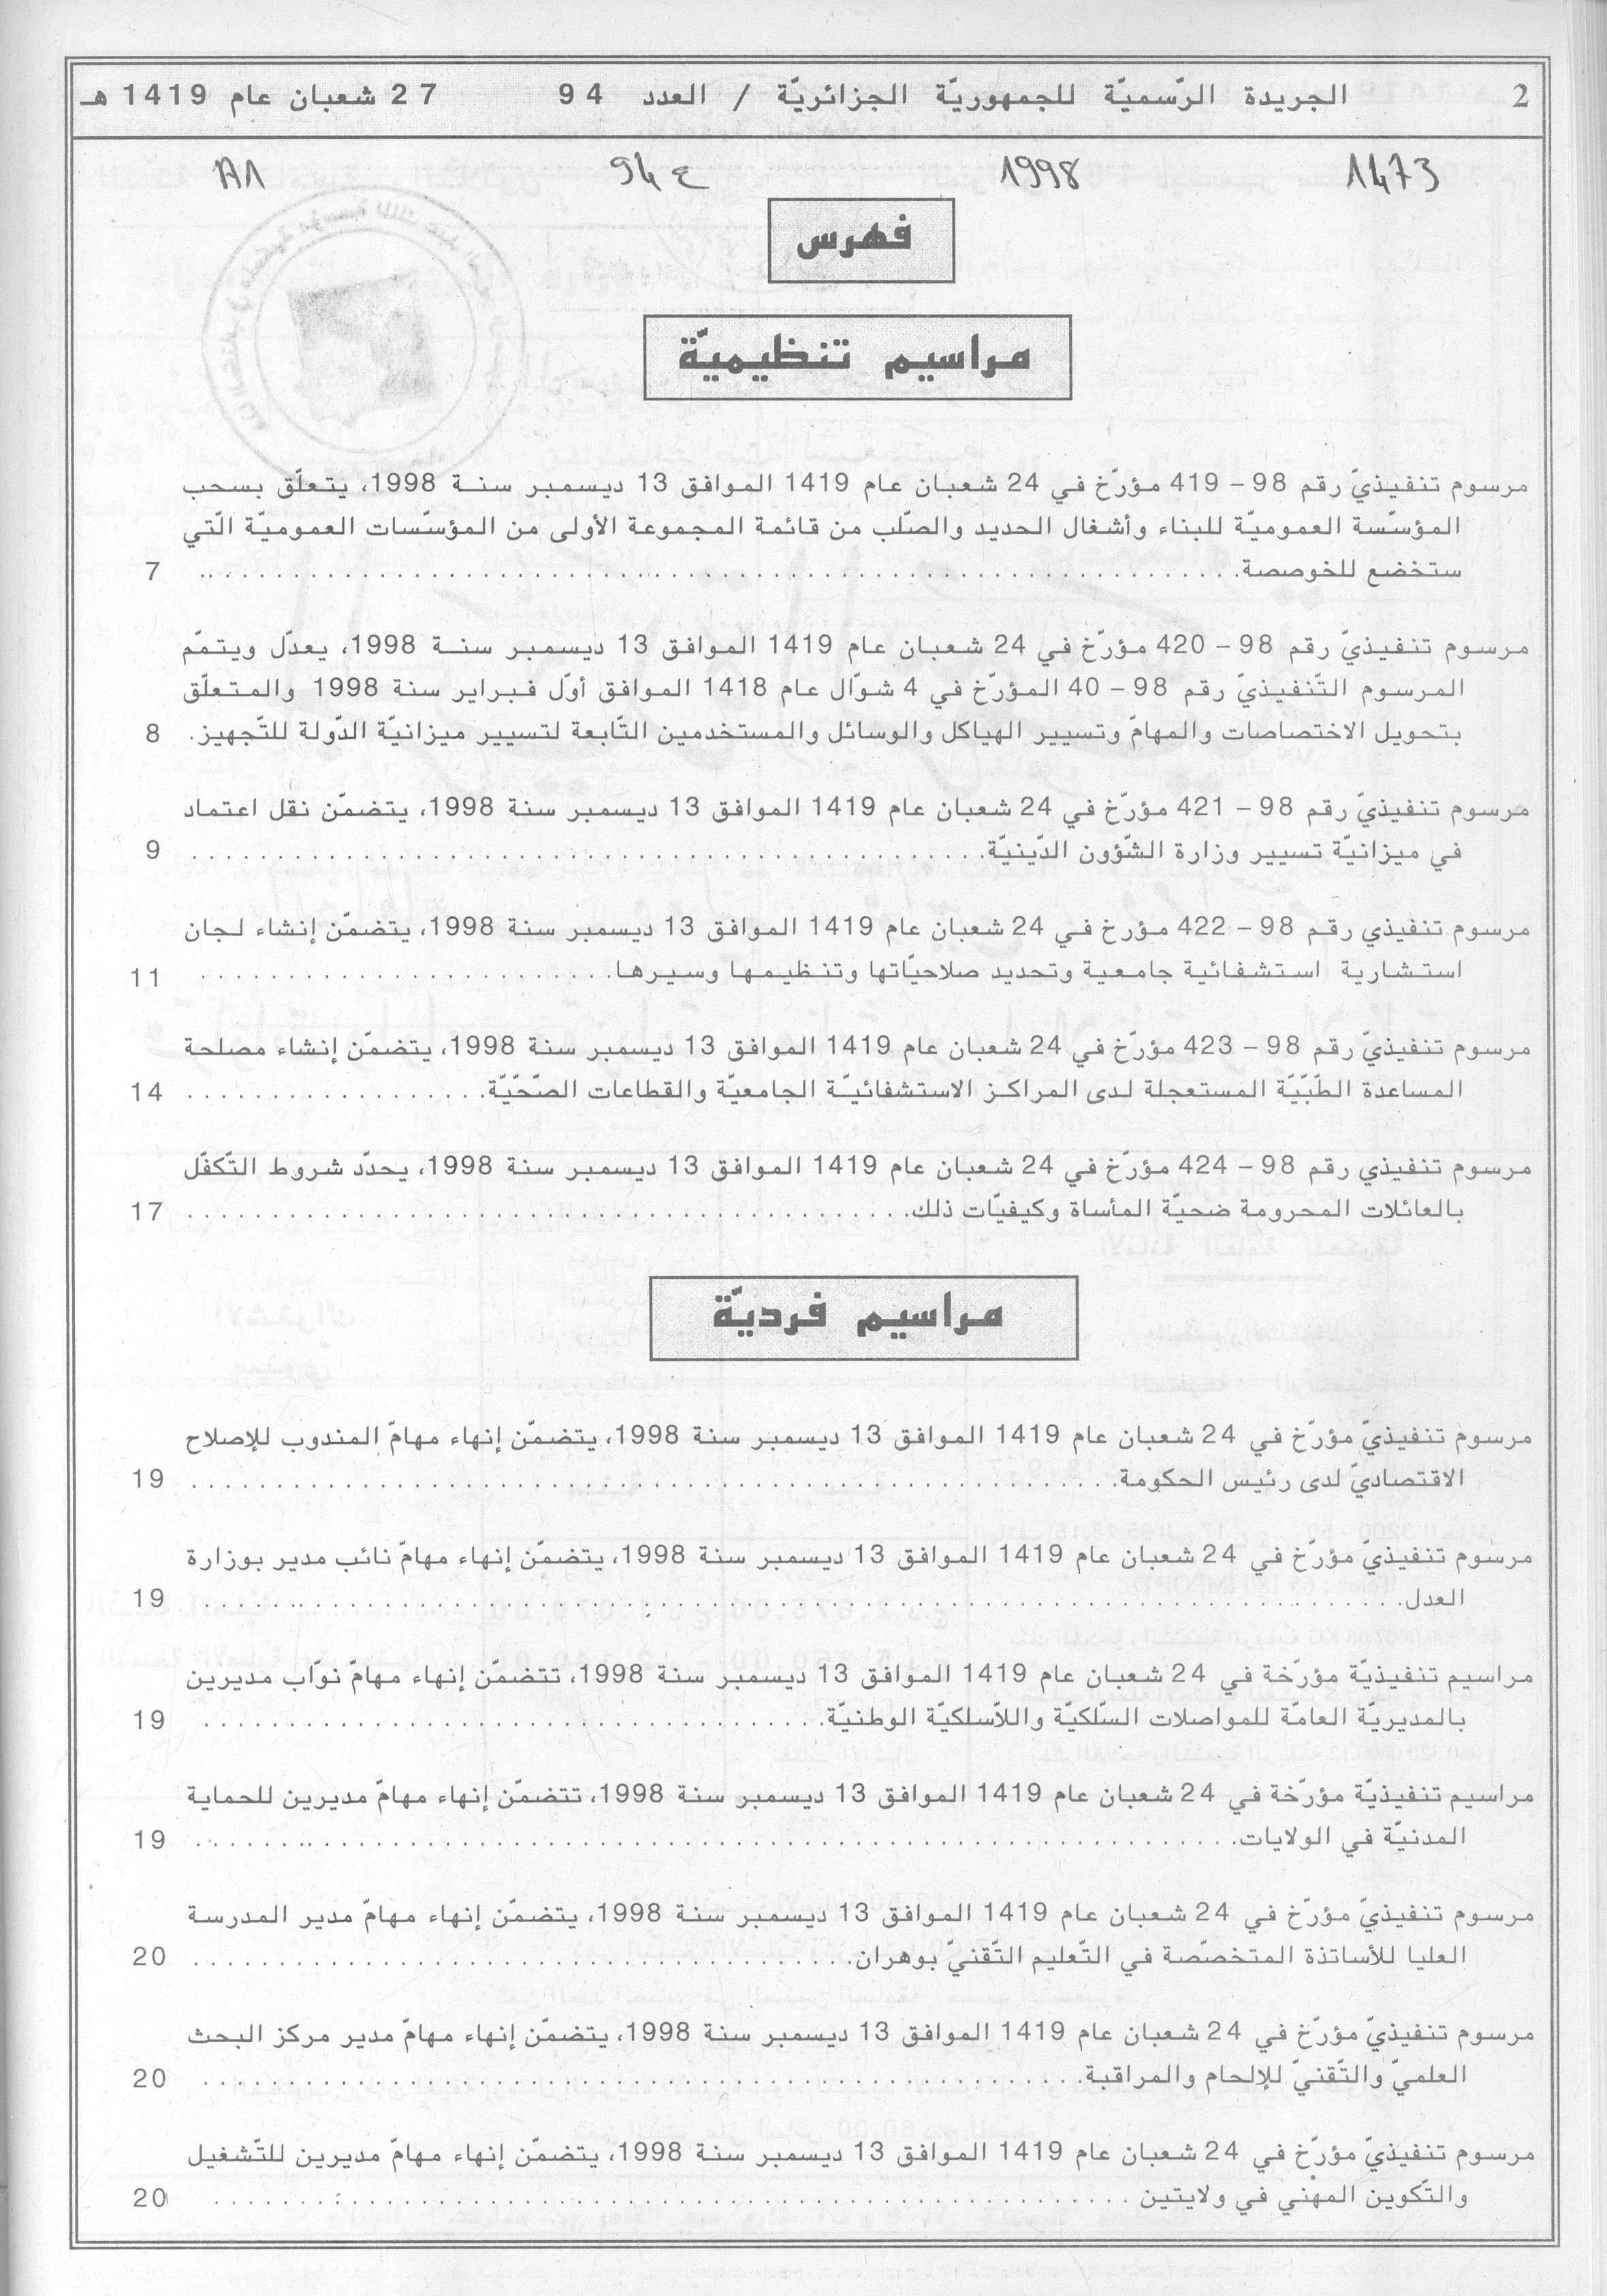 2 الجريدة الرّسميّة للجمهوريّة الجزائريّة / العدد 94 27 شعبان عام 1419 هـ
1473 1998 94 ع
فهرس
مراسيم تنظيميّة
مرسوم تنفيذيّ رقم 98 – 419 مؤرّخ في 24 شعبان عام 1419 الموافق 13 ديسمبر سنة 1998، يتعلّق بسحب
المؤسّسة العموميّة للبناء وأشغال الحديد والصّلب من قائمة المجموعة الأولى من المؤسّسات العموميّة الّتي
ستخضع للخوصصة. 7
مرسوم تنفيذيّ رقم 98 – 420 مؤرّخ في 24 شعبان عام 1419 الموافق 13 ديسمبر سنة 1998، يعدّل ويتمّم
المرسوم التّنفيذيّ رقم 98 – 40 المؤرّخ في 4 شوّال عام 1418 الموافق أوّل فبراير سنة 1998 والمتعلّق
بتحويل الاختصاصات والمهامّ وتسيير الهياكل والوسائل والمستخدمين التّابعة لتسيير ميزانيّة الدّولة للتّجهيز. 8
مرسوم تنفيذيّ رقم 98 – 421 مؤرّخ في 24 شعبان عام 1419 الموافق 13 ديسمبر سنة 1998، يتضمّن نقل اعتماد
في ميزانيّة تسيير وزارة الشّؤون الدّينيّة. 9
مرسوم تنفيذي رقم 98 – 422 مؤرخ في 24 شعبان عام 1419 الموافق 13 ديسمبر سنة 1998، يتضمّن إنشاء لجان
استشارية استشفائية جامعية وتحديد صلاحيّاتها وتنظيمها وسيرها. 11
مرسوم تنفيذيّ رقم 98 – 423 مؤرّخ في 24 شعبان عام 1419 الموافق 13 ديسمبر سنة 1998، يتضمّن إنشاء مصلحة
المساعدة الطّبّيّة المستعجلة لدى المراكز الاستشفائيّة الجامعيّة والقطاعات الصّحّيّة. 14
مرسوم تنفيذي رقم 98 – 424 مؤرّخ في 24 شعبان عام 1419 الموافق 13 ديسمبر سنة 1998، يحدّد شروط التّكفّل
بالعائلات المحرومة ضحيّة المأساة وكيفيّات ذلك. 17
مراسيم فرديّة
مرسوم تنفيذيّ مؤرّخ في 24 شعبان عام 1419 الموافق 13 ديسمبر سنة 1998، يتضمّن إنهاء مهامّ المندوب للإصلاح
الاقتصاديّ لدى رئيس الحكومة. 19
مرسوم تنفيذيّ مؤرّخ في 24 شعبان عام 1419 الموافق 13 ديسمبر سنة 1998، يتضمّن إنهاء مهامّ نائب مدير بوزارة
العدل. 19
مراسيم تنفيذيّة مؤرّخة في 24 شعبان عام 1419 الموافق 13 ديسمبر سنة 1998، تتضمّن إنهاء مهامّ نوّاب مديرين
بالمديريّة العامّة للمواصلات السّلكيّة واللاّسلكيّة الوطنيّة. 19
مراسيم تنفيذيّة مؤرّخة في 24 شعبان عام 1419 الموافق 13 ديسمبر سنة 1998، تتضمّن إنهاء مهامّ مديرين للحماية
المدنيّة في الولايات. 19
مرسوم تنفيذيّ مؤرّخ في 24 شعبان عام 1419 الموافق 13 ديسمبر سنة 1998، يتضمّن إنهاء مهامّ مدير المدرسة
العليا للأساتذة المتخصّصة في التّعليم التّقنيّ بوهران. 20
مرسوم تنفيذيّ مؤرّخ في 24 شعبان عام 1419 الموافق 13 ديسمبر سنة 1998، يتضمّن إنهاء مهامّ مدير مركز البحث
العلميّ والتّقنيّ للإلحام والمراقبة. 20
مرسوم تنفيذيّ مؤرّخ في 24 شعبان عام 1419 الموافق 13 ديسمبر سنة 1998، يتضمّن إنهاء مهامّ مديرين للتّشغيل
والتّكوين المهني في ولايتين 20